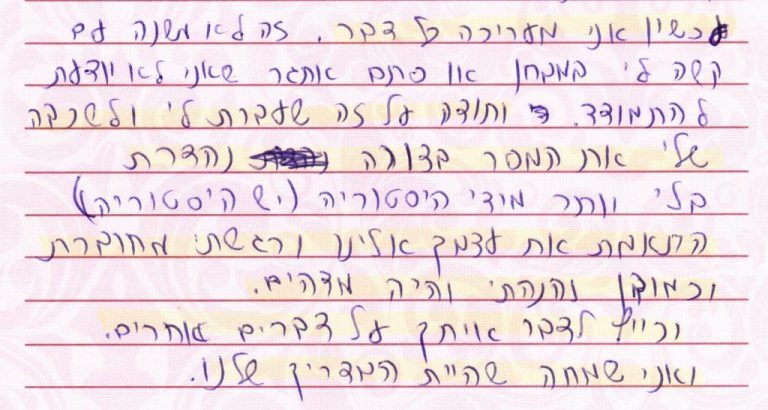 עכשיו אני מעריכה כל דבר. זה לא משנה עם
קשה לי במבחן או סתם אתגר שאני לא יודעת
להתמודד. ותודה על זה שעברת לי ולשכבה
שלי את המסר בצורה נהדרת
בלי יותר מידי היסטוריה (יש היסטוריה)
התאמת את עצמך אלינו ורגשתי מחוברת
וכמובן נהנתי והיה מדהים.
וכייף לדבר איתך על דברים אחרים.
ואני שמחה שהיית המדריך שלנו.